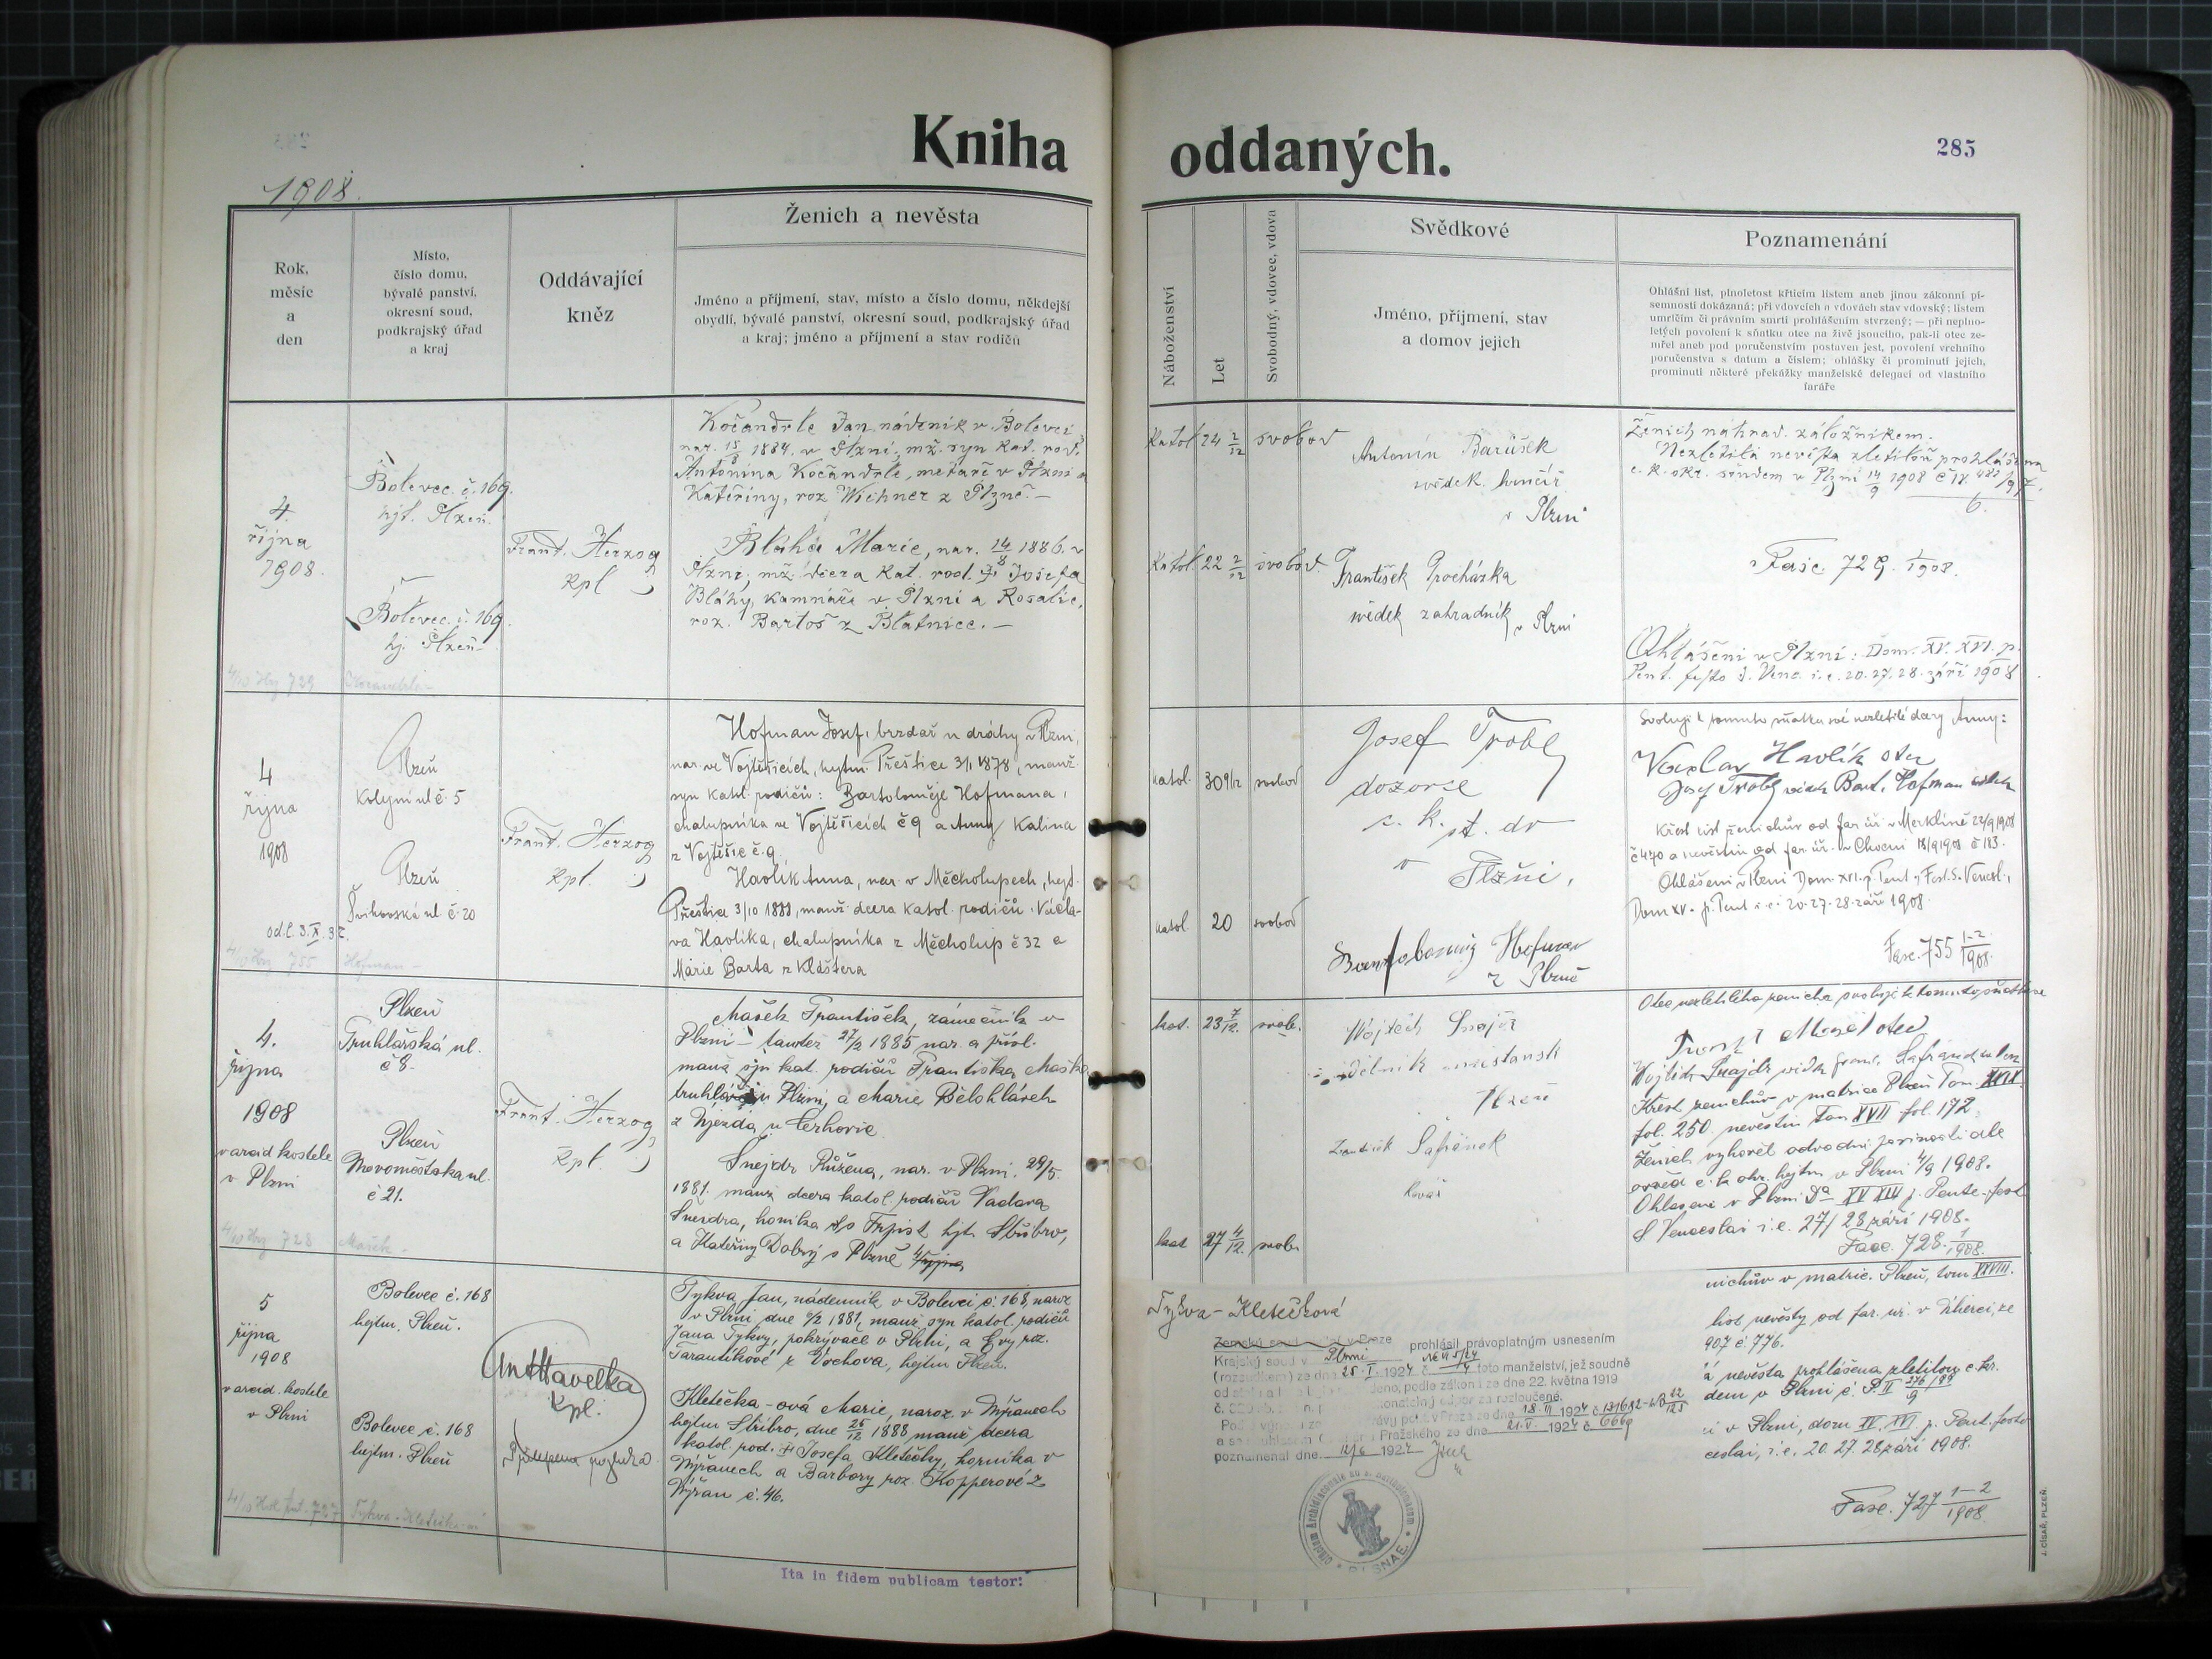 Kniha oddaných.
285
1908.
Rok,
měsíc
a
den
Místo,
číslo domu,
bývalé panství,
okresní soud,
podkrajský úřad
a kraj
Oddávající
kněz
Ženich a nevěsta
Jméno a příjmení, stav, místo a číslo domu, někdejší
obydlí, bývalé panství, okresní soud, podkrajský úřad
a kraj; jméno a příjmení a stav rodičů
Náboženství
Let
Svobodný, vdovec, vdova
Svědkové
Jméno, příjmení, stav
a domov jejich
Poznamenání
Ohlášní list, plnoletost křticím listem aneb jinou zákonní pí-
semností dokázaná; při vdovcích a vdovách stav vdovský; listem
umrlčím či právním smrti prohlášením stvrzený; — při neplno-
letých povolení k sňatku otce na živě jsoucího, pak-li otec ze-
mřel aneb pod poručenstvím postaven jest, povolení vrchního
poručenstva s datum a číslem; ohlášky či prominutí jejich,
prominutí některé překážky manželské delegací od vlastního
faráře
4.
října
1908.
Bolevec č. 169.
hjt. Plzeň.
Bolevec č. 169.
hj. Plzeň
Frant. Herzog
kpl
Kočandrle Jan nádeník v Bolevci
nar. 15/8 1884. v Plzni, mž. syn kat. rod.
Antonína Kočandrle, metaře v Plzni a
Kateřiny, roz. Wichner z Plzně.—
Bláha Marie, nar. 14/8 1886. v
Plzni, mž. dcera kat. rod. Josefa
Bláhy, kamnáře v Plzni a Rosalie,
roz. Bartoš z Blatnice.—
4/10 Hrz 729 Kočandrle—
Katol. 24 2/12 svobod
Katol. 22 2/12 svobod.
Antonín Barůšek
svědek hrnčíř
v Plzni
František Procházka
svědek zahradník v Plzni
Ženich náhrad. záložníkem.
Nezletilá nevěsta zletilou prohlášena
c. k. okr. soudem v Plzni 14/9 1908
Fasc. 729. 1/1908.
Ohlášeni v Plzni: Dom. XV. XVI. p.
Pent. festo S. Venc. i. e. 20. 27. 28. září 1908
4
října
1908
Plzeň
Kolejní ul č. 5
Plzeň
Švihovská ul. č. 20
4/10 Hrz 755 Hofman—
Frant. Herzog
kpl.
Hofman Josef, brzdař u dráhy v Plzni,
nar. ve Vojtěšicích, hejtm. Přeštice 3/1 1878, manž.
syn katol. rodičů: Bartoloměje Hofmana,
chalupníka ve Vojtěšicích č 9 a Anny Kalina
z Vojtěšic č. 9.
Havlík Anna, nar. v Měcholupech, hejt.
Přeštice 3/10 1888, manž. dcera katol. rodičů Václa-
va Havlíka, chalupníka z Měcholup č 32 a
Marie Barta z Kláštera
katol. 30 9/12 svobod
katol. 20 svobod
Josef Trobl
dozorce
c. k. st. dr
v
Plzni.
Hofman
z Plzně
Svoluji k tomuto sňatku své nezletilé dcery Anny:
Václav Havlík otec
Josef Trobl svědek Bart. Hofman svědek
Křest. list ženichův od far. úř. v Merklíně 22/9 1908
č 470 a nevěstin od far. úř. v 18/9 1908 č 183.
Ohlášeni v Plzni Dom. XVI. p. Pent. Fest. S. Vencesl.,
Dom XV. p. Pent i. e. 20-27-28. září 1908.
Fasc. 755 1-2/1908.
4.
října
1908
v arcid kostele
v Plzni
Plzeň
Truhlářská ul.
č 8.
Plzeň
Novoměstská ul.
č 21.
4/10 Hrz 728 Mašek—
Frant. Herzog
kpl.
Mašek František, zámečník v
Plzni — tamtéž 27/2 1885 nar. a přísl.
manž syn kat. rodičů Františka Maška
truhláře v Plzni, a Marie Bělohlávek
z Újezda u Cerhovic
Šnejdr Růžena, nar. v Plzni, 29/5.
1881. manž dcera katol. rodičů Václava
Šnejdra, horníka ze Trpist hjt. Stříbro,
a Kateřiny Dobrý z Plzně
kat. 23 7/12. svob.
kat 27 4/12. svob.
Vojtěch Šnajdr
dělník
Plzeň
František Šafránek
kovář
Otec nezletilého ženicha svoluji k tomuto sňatku
otec
Vojtěch Šnajdr svědek Šafránek
Křest. ženichův v matrice Plzeň Tom. XXIX.
fol. 250 nevěstin tom XVII fol. 172.
Ženich vyhověl odvodní povinnosti dle
c. k. okr. hejtm v Plzni 4/9 1908.
Ohlášeni v Plzni Dom. XV XVI p. Pente. fest
S Venceslai i. e. 27/ 28 září 1908.
Fasc. 728. 1/1908.
5
října
1908
v arcid. kostele
v Plzni
Bolevec č. 168
hejtm. Plzeň.
Bolevec č. 168
hejtm. Plzeň
4/10 727 Tykva-Kletečková
Ant Havelka
kpl.
Tykva Jan, nádenník v Bolevci č. 168, naroz
v Plzni, dne 6/2 1881, manž syn katol. rodičů
Jana Tykvy, pokrývače v Plzni, a Evy roz.
Tarantíkové z Vochova, hejtm Plzeň.
Kletečka-ová Marie, naroz. v Nýřanech
hejtm Stříbro, dne 25/12 1888 manž dcera
katol. rod. Josefa Kletečky, horníka v
Nýřanech a Barbory roz. Kopperové z
Nýřan č. 46.
Ita in fidem publicam testor:
Tykva-Kletečková
prohlásil právoplatným usnesením
Krajský soud v Plzni
(rozsudkem) ze dne 25. I. 1924 č. toto manželství, jež soudně
podle zákona ze dne 22. května 1919
za rozloučené.
Pražského ze dne 21. V. 1924 č. 6669
poznamenal dne 12/6 1924
nichův v matric. Plzeň, tom XXVIII.
list nevěsty od far. úř. v
907 č. 776.
á nevěsta prohlášena zletilou c. kr.
dem v Plzni č. P. II 276/99 9
i v Plzni, dom XV. XVI. p. Pent. festo
ceslai, i. e. 20. 27. 28 září 1908.
Fasc. 727 1-2/1908.
J. CÍSAŘ, PLZEŇ.